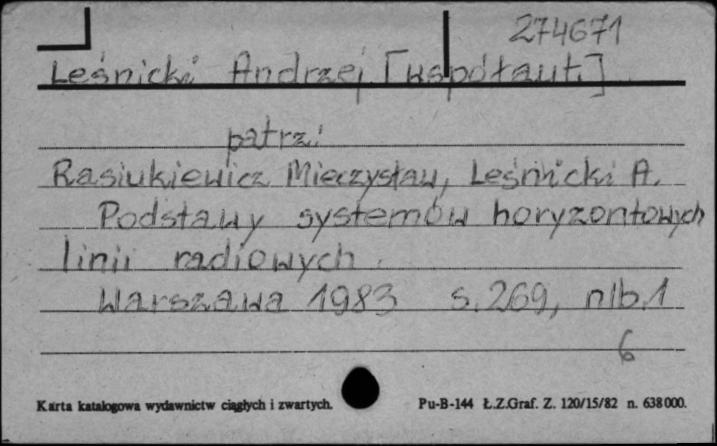 274671
Leśnicki Andrzej [współaut.]
patrz:
Rasiukiewicz Mieczysław, Leśnicki A.
Podstawy systemów horyzontowych
linii radiowych.
Warszawa 1983 s. 269, nlb. 1
6
Karta katalogowa wydawnictw ciągłych i zwartych.
Pu-B-144 Ł.Z.Graf. Z. 120/15/82 n. 638000.